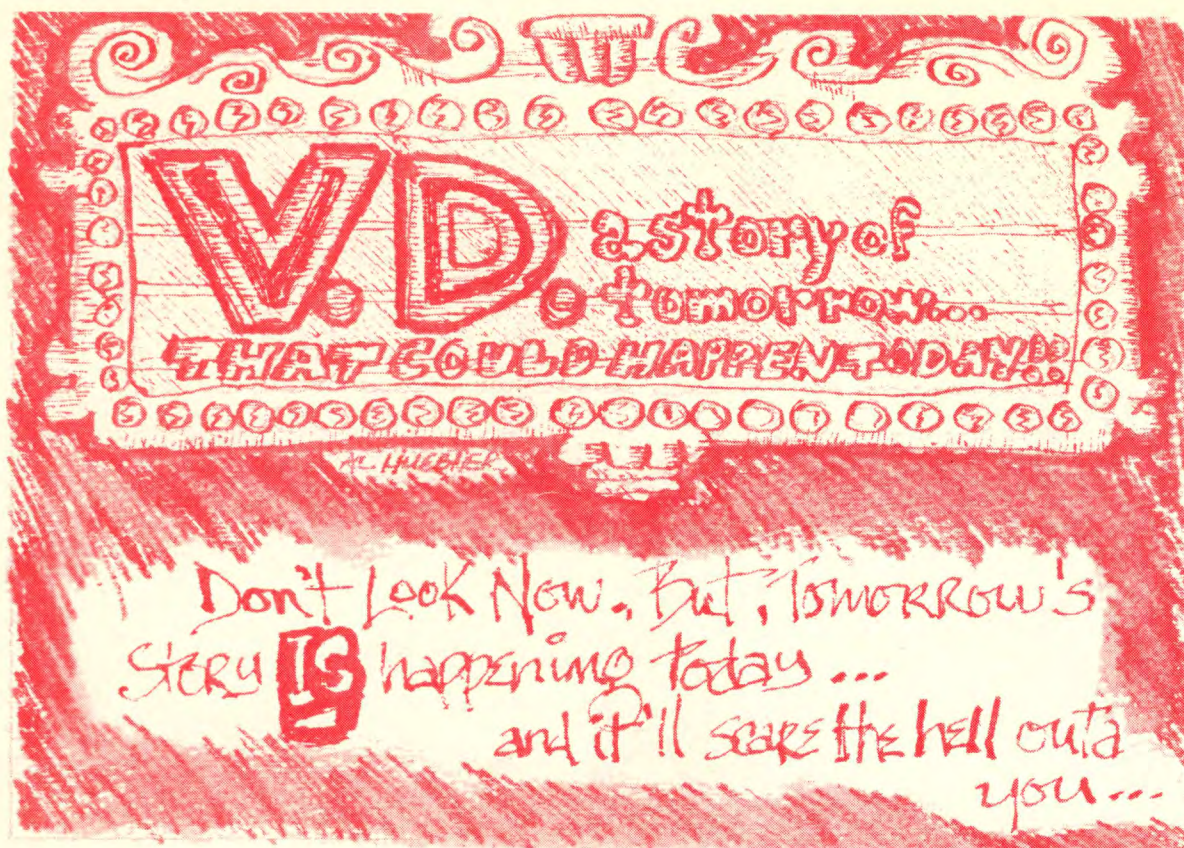 V.D. a story of
tomorrow...
THAT COULD HAPPEN TODAY!!
AL HUEBNER
Don't Look Now. But, Tomorrow's
story IS happening today...
and it'll scare the hell outa
you...